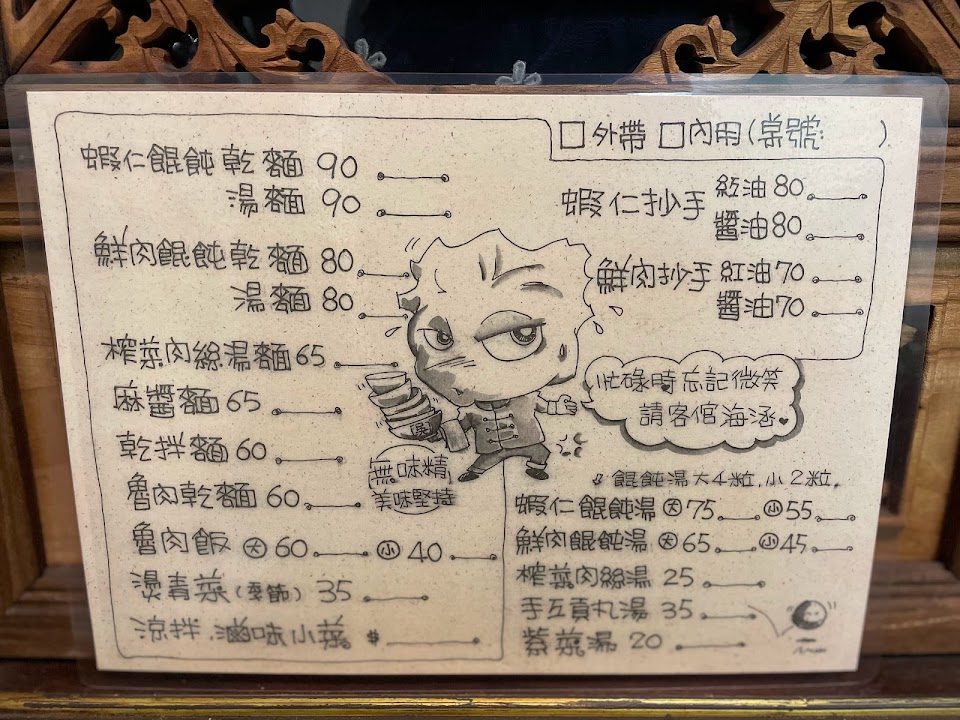 □外帶 □內用(桌號: )
蝦仁餛飩乾麵 90
湯麵 90
鮮肉餛飩乾麵 80
湯麵 80
榨菜肉絲湯麵 65
麻醬麵 65
乾拌麵 60
魯肉乾麵 60
魯肉飯 大 60 小 40
燙青菜(季節) 35
涼拌.滷味小菜 $
蝦仁抄手 紅油 80
醬油 80
鮮肉抄手 紅油 70
醬油 70
忙碌時忘記微笑
請客倌海涵
無味精
美味堅持
餛飩湯大4粒.小2粒.
蝦仁餛飩湯 大 75 小 55
鮮肉餛飩湯 大 65 小 45
榨菜肉絲湯 25
手工貢丸湯 35
紫菜湯 20